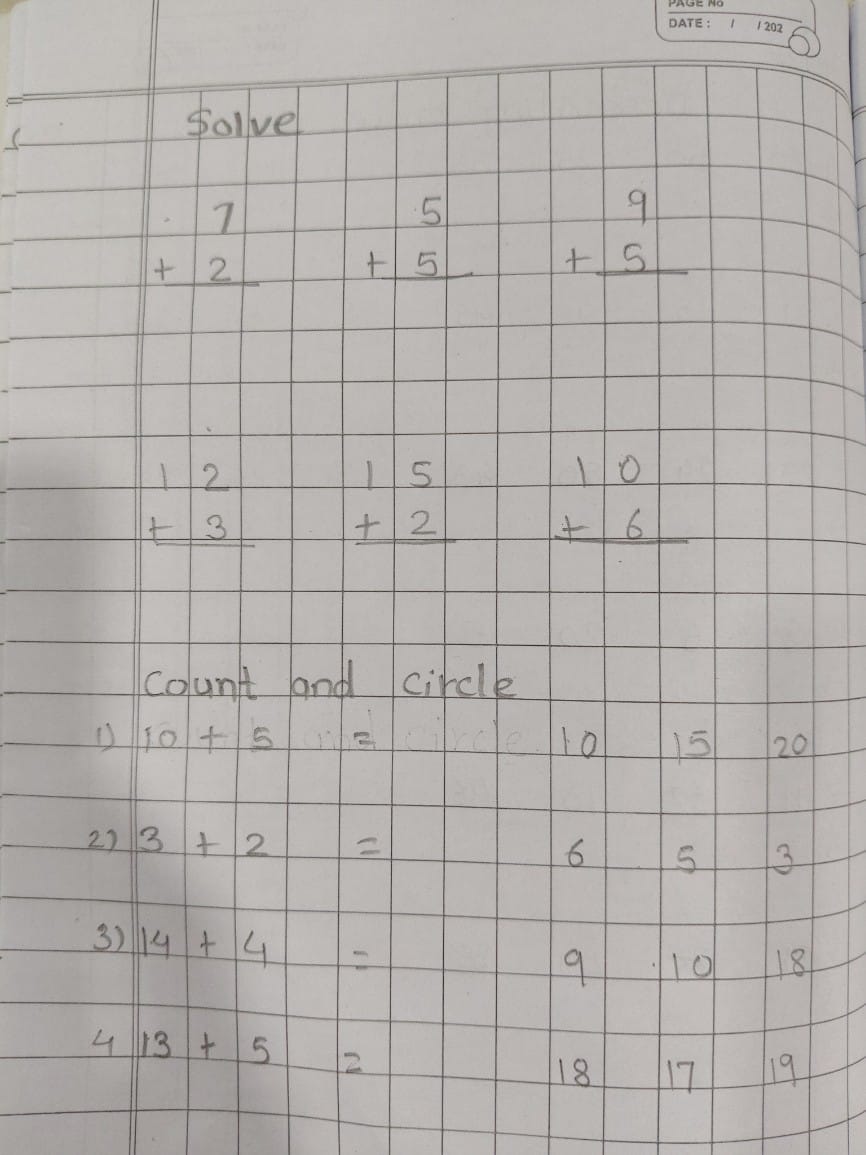 PAGE No
DATE : / / 202
Solve
7 5 9
+ 2 + 5 + 5
12 15 10
+ 3 + 2 + 6
Count and circle
1) 10 + 5 = 10 15 20
2) 3 + 2 = 6 5 3
3) 14 + 4 = 9 10 18
4 13 + 5 = 18 17 19